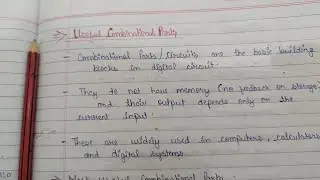 ⇒ Useful Combinational Parts
- Combinational Parts / Circuits are the basic building
blocks in digital circuit.
- They do not have memory (no feedback or storage)
and their output depends only on the
current input.
- These are widely used in computers, calculators
and digital systems
Most Useful Combinational Parts